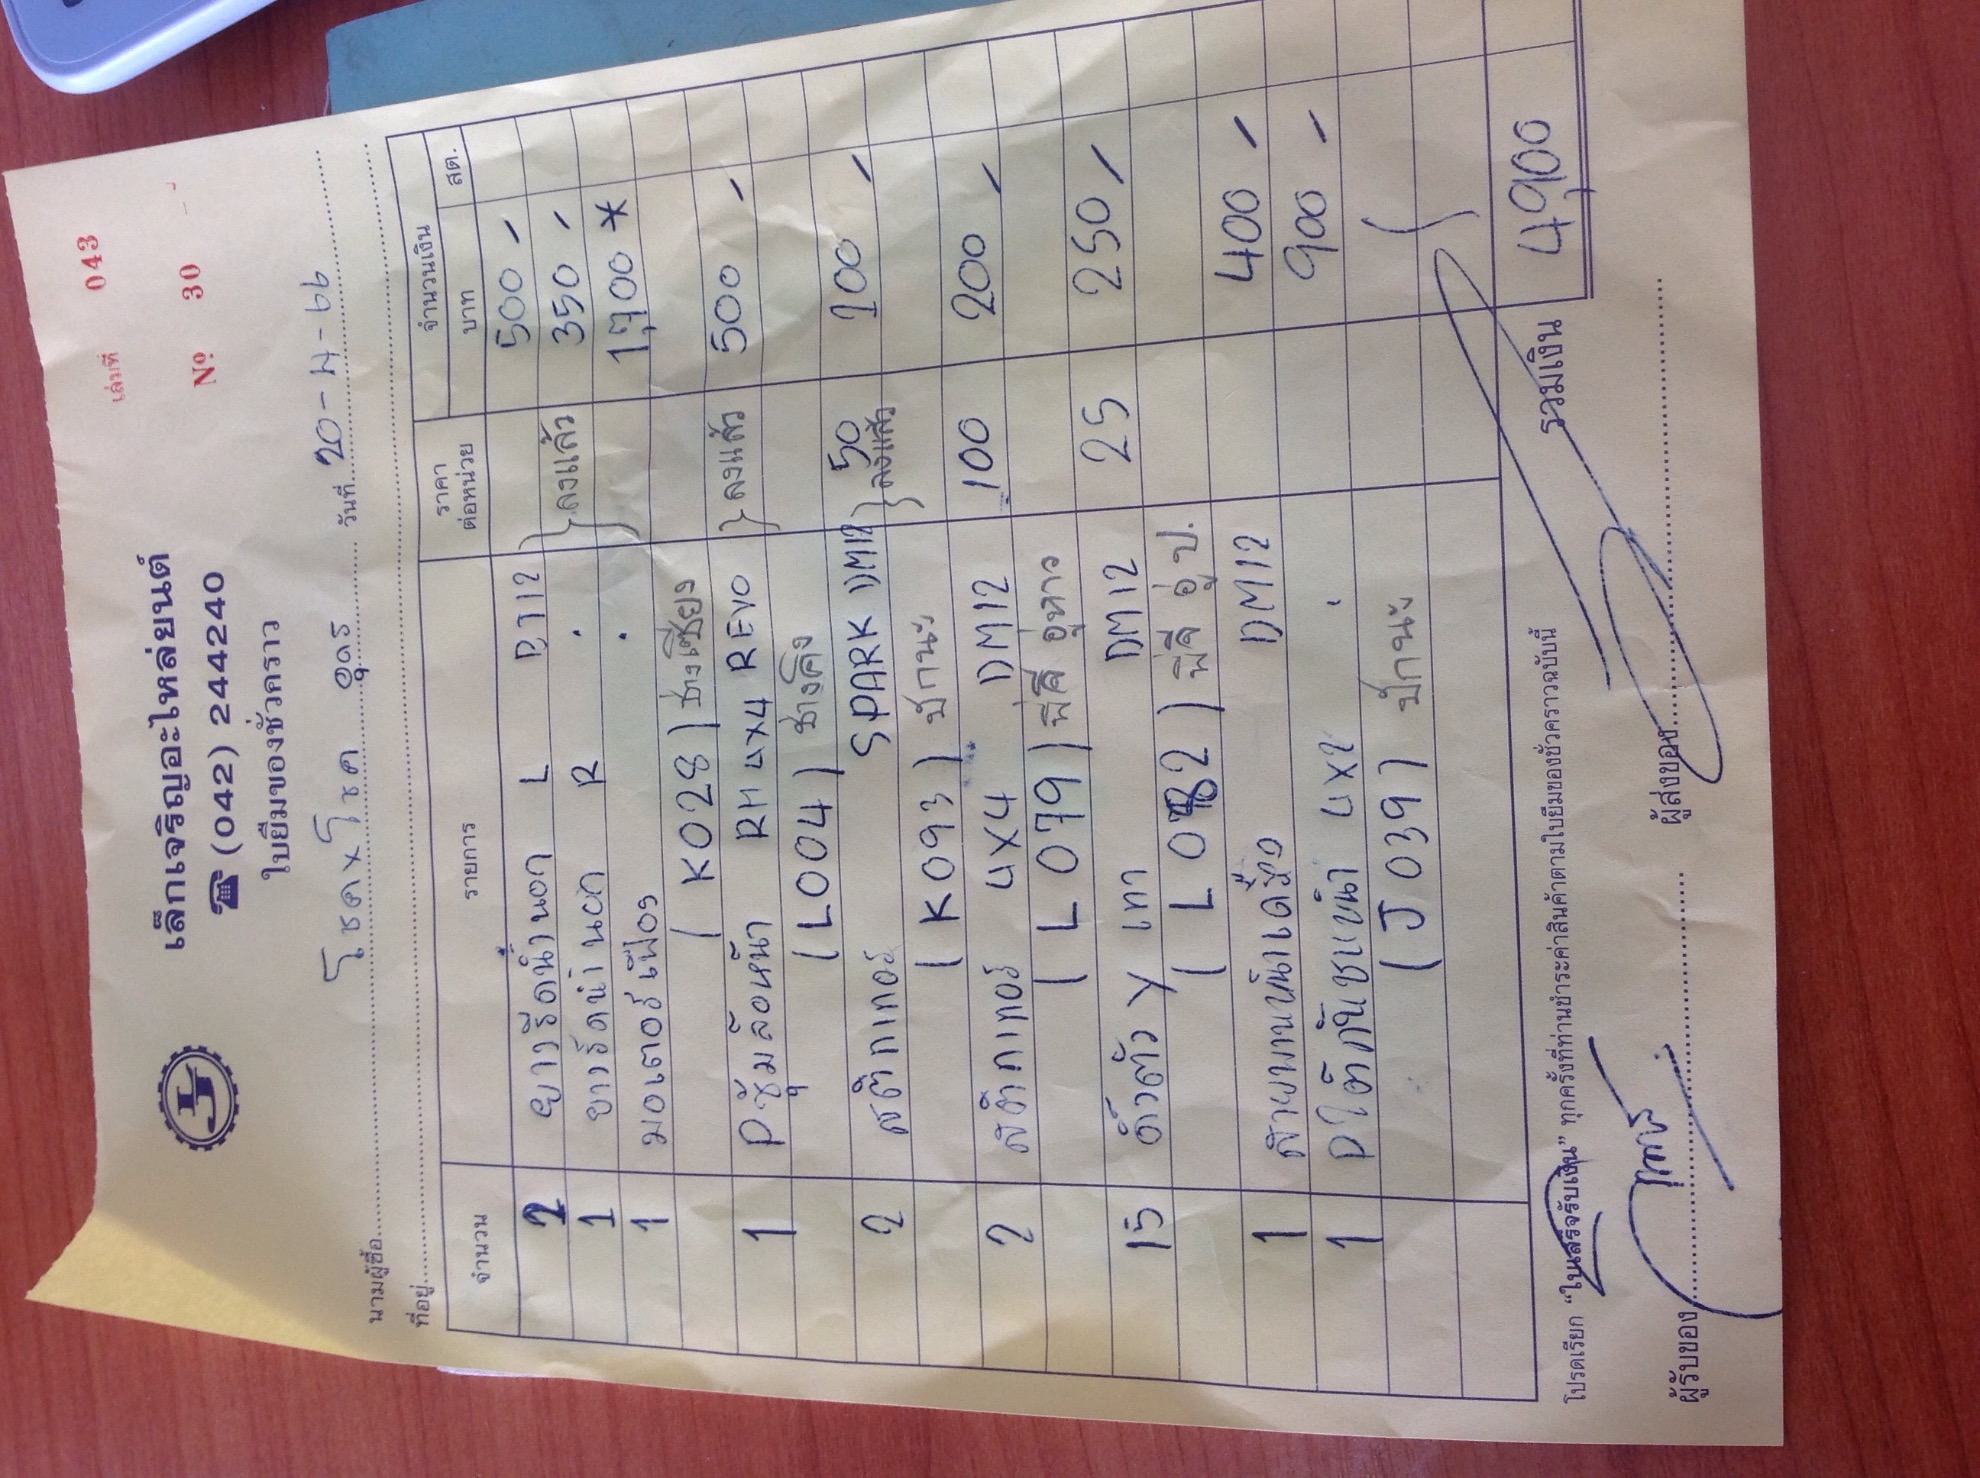 เล่มที่ 043
เล็กเจริญอะไหล่ยนต์
☎ (042) 244240
Nº 30
ใบยืมของชั่วคราว
นามผู้ซื้อ โชคxโชค อุดร วันที่ 20-4-66
ที่อยู่
จำนวน รายการ ราคาต่อหน่วย จำนวนเงิน
บาท สต.
2 ยางรีดน้ำนอก L ลงแล้ว 500 -
1 ยางรีดน้ำนอก R 350 -
1 มอเตอร์เฟือง 1,700 *
(K028) ช่างเซียง
1 Pซุ้มล้อหน้า RH 4x4 REVO ลงแล้ว 500 -
(L004) ช่างคิง
2 สติกเกอร์ SPARK DM12 50 100 -
(K093) ป๋กานะ ลงแล้ว
2 สติกเกอร์ 4x4 DM12 100 200 -
(L079) พี่สี อู่
15 ตัว Y เทา DM12 25 250 -
(L082) พี่สี อู่ ป.
1 DM12 400 -
1 4x2 900 -
(J039) ป๋กานะ
รวมเงิน 4,900
โปรดเรียก "ใบเสร็จรับเงิน" ทุกครั้งที่ท่านชำระค่าสินค้าตามใบยืมของชั่วคราวฉบับนี้
ผู้รับของ ผู้ส่งของ